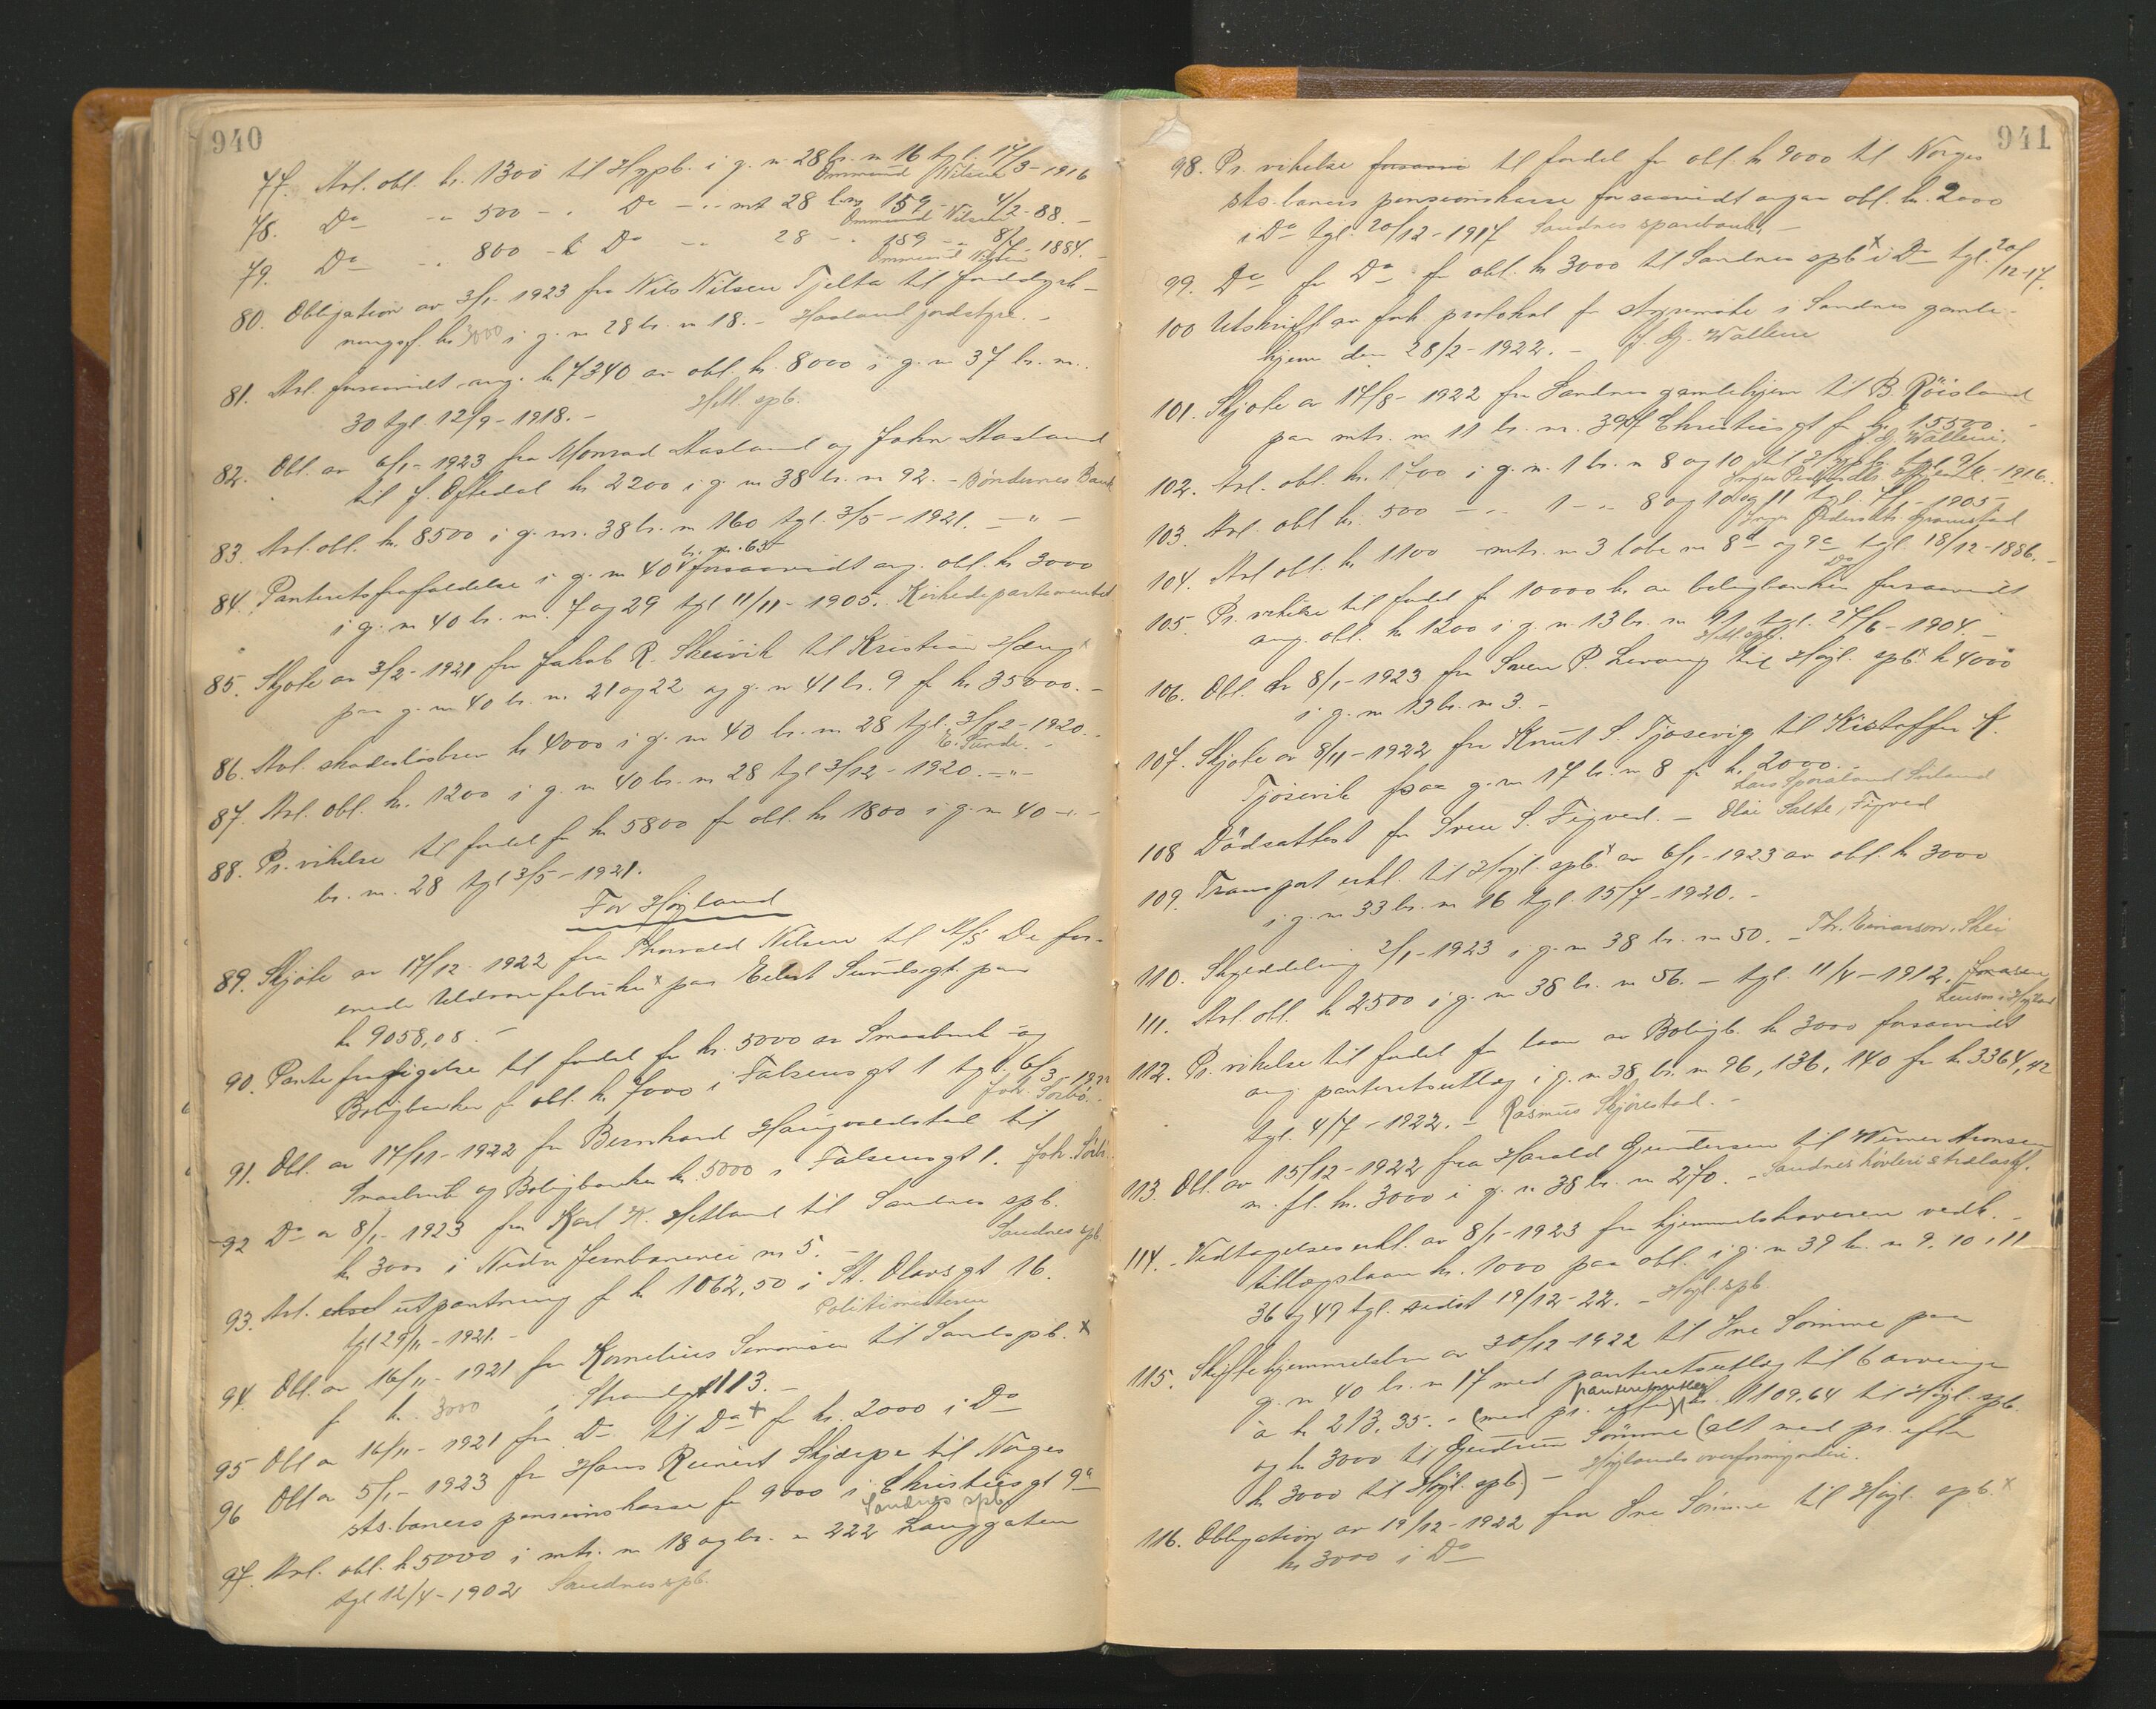 940
77. Avl. obl. kr. 1300 til Hypb. i g. nr 28 br. nr 16 tgl. 17/3-1916
Ommund Nilsen
78. Do - " 500 - " Do - " - mt 28 br. nr 159 - 4/2-88. -
Ommund Nilsen
79. Do - " 800 - kr Do - " 28 - " 159 - " 8/7-1884. -
Ommund Nilsen
80. Obligation av 3/1-1923 fra Nils Nilsen Tjelta til jorddyrk-
ningsf. kr 3000 i g. nr 28 br. nr 18. - Haaland jordstyre. -
81. Avl. forsaavidt ang. kr 7340 av obl. kr. 8000 i g. nr 37 br. nr.
30 tgl 12/9-1918. - Hetl. spb.
82. Obl. av 6/1-1923 fra Monrad Aasland og John Aasland
til J. Oftedal kr 2200 i g. nr 38 br. nr 92. - Bøndernes Bank
83. Avl. obl. kr. 8500 i g. nr. 38 br. nr 160 tgl. 3/5-1921. - " -
br. nr. 65
84. Panteretsfrafaldelse i g. nr 40 forsaavidt ang. obl. kr 3000
i g. nr 40 br. nr. 7 og 29 tgl 11/11-1905. Kirkedepartementet
85. Skjøte av 3/2-1921 fra Jakob R. Skeivik til Kristian Haug x
paa g. nr 40 br. nr. 21 og 22 og g. nr 41 br. 9 for kr 35000. -
86. Avl. skadesløsbrev kr 4000 i g. nr 40 br. nr 28 tgl. 3/12-1920. -
E. Sunde. -
87. Avl. obl. kr. 1200 i g. nr 40 br. nr 28 tgl 3/12-1920. - " -
88. Pr. vikelse til fordel for kr 5800 for obl. kr 1800 i g. nr 40 - " -
br. nr. 28 tgl 3/5-1921.
For Høyland
89. Skjøte av 17/12-1922 fra Thorvald Nilsen til A/S De for-
enede Uldvarefabriker x paa Eilert Sundsgt. paa
kr 9058,08. -
90. Pantefravigelse til fordel for kr. 5000 av Smaabruk- og
Boligbanken for obl. kr 7000 i Falsensgt 1 tgl. 6/3-1922
Joh. Sørbø. -
91. Obl. av 14/11-1922 fra Bernhard Haugvaldstad til
Smaabruk og Boligbanken kr. 5000 i Falsensgt 1. Joh. Sørb.
92 Do av 8/1-1923 fra Karl K. Hetland til Sandnes spb.
kr 3000 i Nedre Jernbanevei nr 5. - Sandnes spb
93. Avl. utpantning for kr 1062,50 i St. Olavsgt 16.
tgl 29/11-1921. - Politimesteren
94. Obl. av 16/11-1921 fra Kornelius Simonsen til Sandspb. x
for kr. 3000 i Strandgt 113. -
95 Obl av 16/11-1921 fra Do til Do x for kr. 2000 i Do
96 Obl av 5/1-1923 fra Hans Reinert Skjærpe til Norges
sts. baners pensionskasse for 9000 i Christiesgt 9a
Sandnes spb
97. Avl. obl. kr 5000 i mtr. nr 18 og br. nr 222 Langgaten
tgl 12/4-1902 Sandnes spb.
941
98. Pr. vikelse til fordel for obl. kr 9000 til Norges
sts. baners pensionskasse forsaavidt angaar obl. kr. 2000
i Do tgl. 20/12-1917 Sandnes sparebank. -
99. Do for Do for obl. kr 3000 til Sandnes spb. x i Do tgl. 20/12-17.
100 Utskrift av forh. protokol for styremøte i Sandnes gamle-
hjem den 28/2-1922. - J. G. Wallem
101. Skjøte av 17/8-1922 fra Sandnes gamlehjem til B. Röisland
paa mtr. nr 11 br. nr. 397 Christiesgt for kr 15500. -
J. G. Wallem.
102. Avl. obl. kr. 1700 i g. nr. 1 br. nr 8 og 10 til Hypb. tgl. 9/4-1916.
103. Avl obl kr. 500 - " 1 - " 8 og 10 og 11 tgl. 7/1-1905
104. Avl obl. kr. 1100 - mtr. nr 3 løbe nr 8a og 9a tgl. 18/12-1886. -
Do
105. Pr. vikelse til fordel for 10000 kr. av boligbanken forsaavidt
ang. obl. kr 1200 i g. nr. 13 br. nr 91 tgl. 27/6-1904. -
Hetl. spb.
106. Obl. av 8/1-1923 fra Søren P. Levang til Høyl. spb. x kr 4000
i g. nr 13 br. nr 3. -
107. Skjøte av 8/11-1922 fra Knut S. Tjøsevig til Kristoffer K.
Tjösevik paa g. nr 17 br. nr 8 for kr. 2000. -
108 Dödsattest for Sven S. Figved. - Olai Salte, Figved
109. Transport erkl. til Høyl. spb. x av 6/1-1923 av obl. kr 3000
i g. nr 33 br. nr 16 tgl. 15/7-1920. -
110. Skylddeling 2/1-1923 i g. nr 38 br. nr 50. - Th. Einarson, Skei
111. Avl. obl. kr 2500 i g. nr 38 br. nr 56. - tgl. 11/4-1912.
Lensm i Høyland
112. Pr. vikelse til fordel for laan av Boligb. kr 3000 forsaavidt
ang panteretsutlæg i g. nr 38 br. nr 96, 136, 140 for kr. 3364,42
tgl. 4/7-1922. - Rasmus Skjørestad. -
113. Obl. av 15/12-1922 fra Harald Gundersen til Werner Aronsen
m. fl. kr. 3000 i g. nr 38 br. nr 270. - Sandnes høvleri & trælastf.
114. Vedtagelseserkl. av 8/1-1923 fra hjemmelshaveren vedk. -
tillægslaan kr. 1000 paa obl. i g. nr 39 br. nr 9, 10, 11
36 og 49 tgl. sidst 19/12-22. - Høyl. spb
115. Skiftehjemmelsbrev av 30/12-1922 til Ine Sömme paa
g. nr 40 br. nr 17 med panteretsutlæg til 6 arvinger
panteretsutlæg
à kr 213,35. - (med pr. efter) kr. 1109,64 til Høyl. spb.
og kr 3000 til Gudrun Sömme (alt med pr. efter
kr 3000 til Høyl. spb.) - Høylands overformynderi.
116. Obligation av 19/12-1922 fra Ine Sömme til Høyl. spb. x
kr 3000 i Do